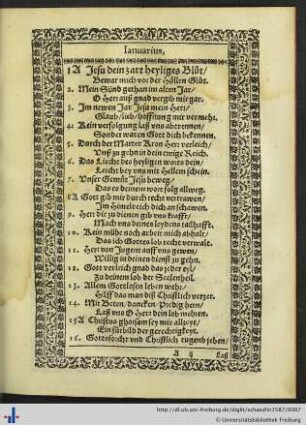 Ianuarius,
1 A Jesu dein zart heyliges Blůt/
Bewar mich vor der Höllen Glůt.
2. Mein Sünd gethan im alten Jar/
O Herr auß gnad vergib mir gar.
3. Im newen Jar Jesu mein Herr/
Glaub/lieb/hoffnung mir vermehr.
4. Kein verfolgung laß uns abtrennen/
Sonder waren Gott dich bekennen.
5. Durch der Marter Kron Herr verleich/
Vnß zu gehn in dein ewige Reich.
6. Das Leicht des heyligen worts dein/
Leicht bey uns mit hellem schein.
7. Vnser Gemüt Jesu beweg/
Das es deinem wort folg allweg.
8 A Gott gib mir durch recht vertrawen/
Im Himelreich dich an schawen.
9. Herr dir zu dienen gib uns krafft/
Mach uns deines leydens teilhafft.
10. Kein mühe noch arbeit mich abhalt/
Das ich Gottes lob recht verwalt.
11. Herr von Jugent auff uns gewen/
Willig in deinen dienst zu gehn.
12. Gott verleich gnad das jeder eyl/
Zu deinem lob der Seelenheil.
13. Allem Gottlosen leben wehr/
Hilff das man diß Christlich verzer.
14. Mit Betten/dancken/Predig hern/
Laß uns O Herr dein lob mehren.
15 A Christus ghorsam sey mir allzeyt/
Ein fürbild der gerechtigkeyt.
16. Gottesforcht und Christlich tugend sehen/
A ij Laß
http://dl.ub.uni-freiburg.de/diglit/schaedlin1587/0007
© Universitätsbibliothek Freiburg